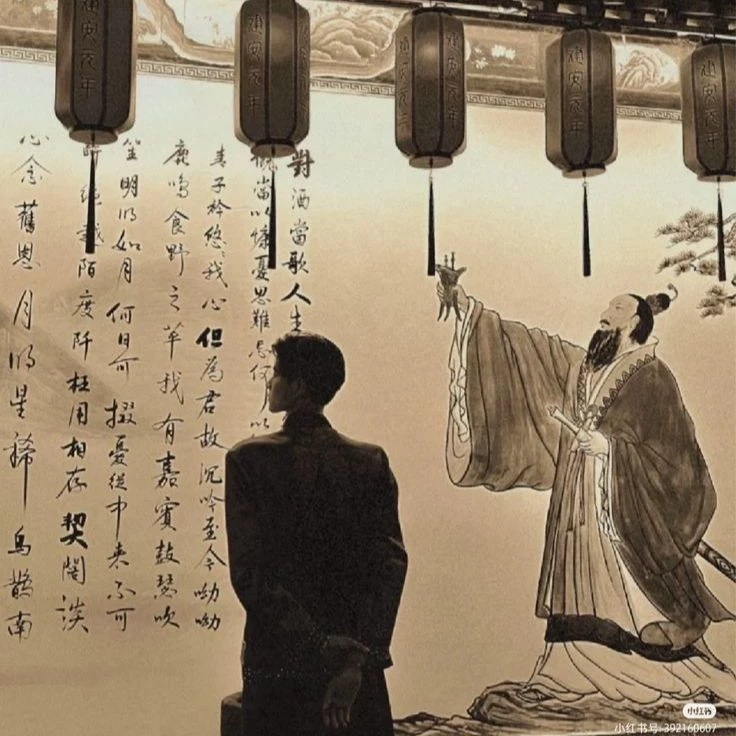 建安元年
建安元年
建安元年
建安元年
建安元年
對酒當歌人生
當以慷憂思難忘何以
青子衿悠悠我心但為君故沉吟至今呦呦
鹿鳴食野之苹我有嘉賓鼓瑟吹
笙明明如月何日可掇憂從中來不可
絕越陌度阡枉用相存契闊談
心念舊恩月明星稀烏鵲南
小红书
小红书号: 392160607